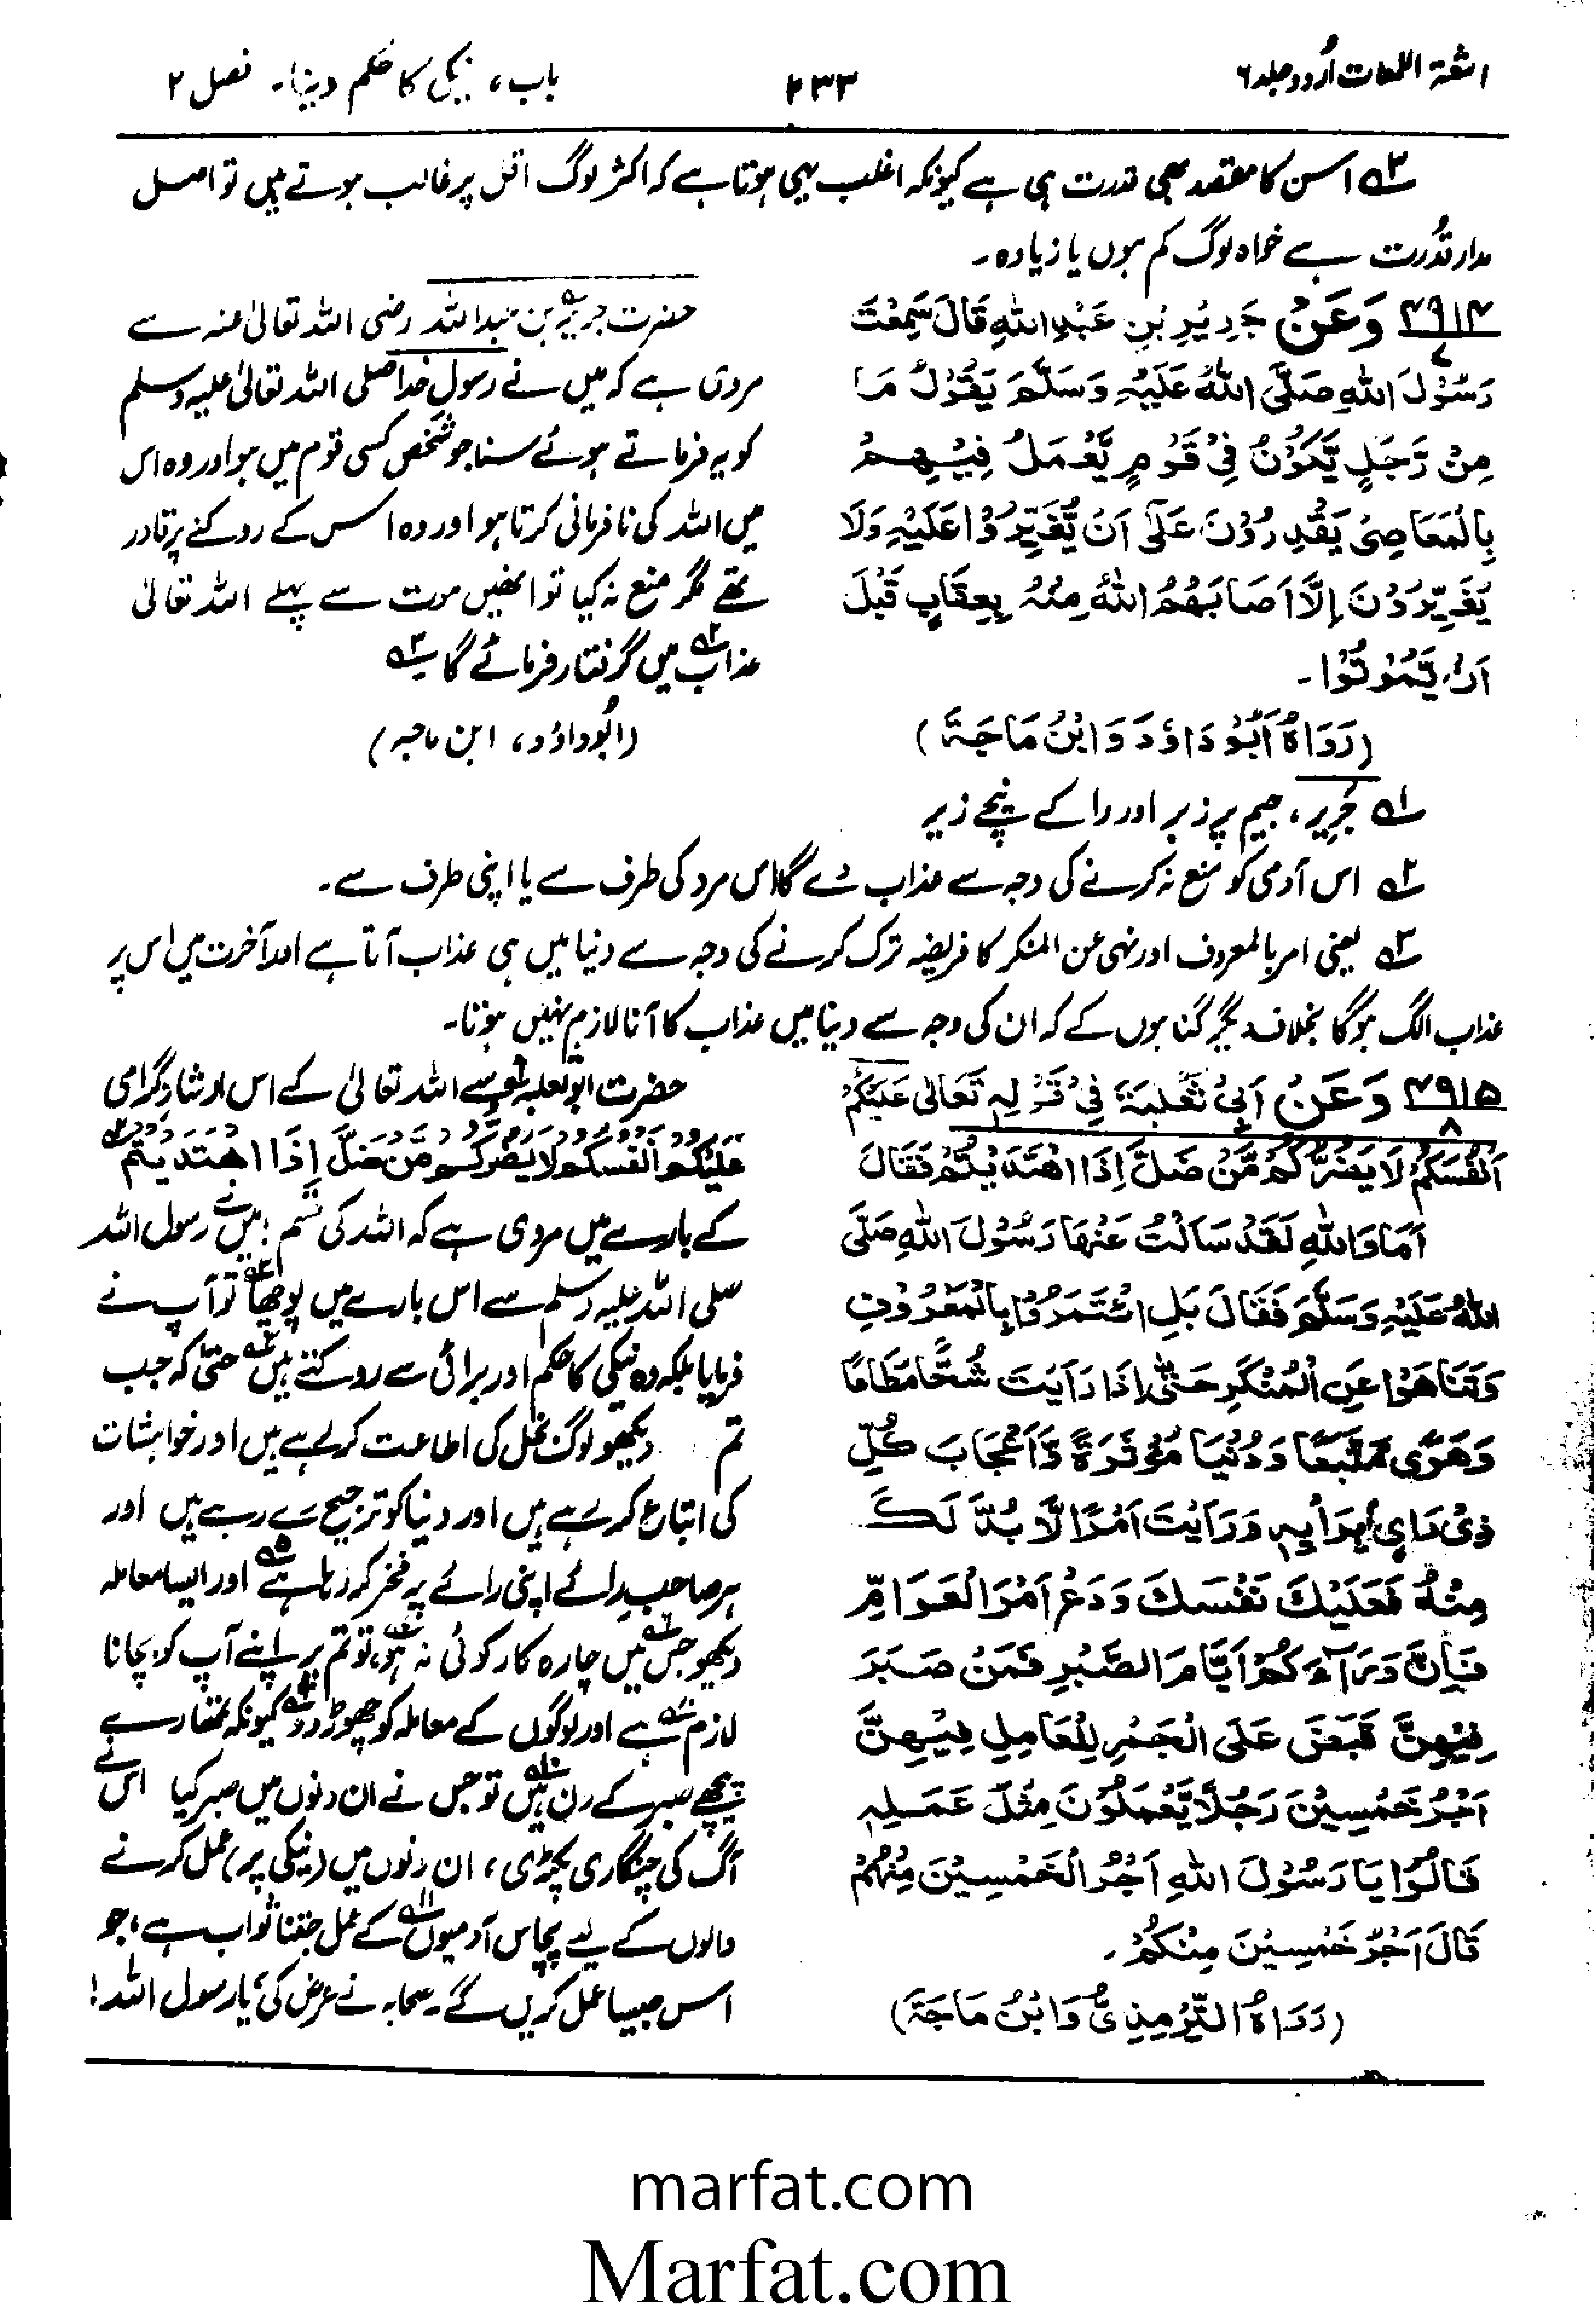 اشعۃ اللمعات اُردو جلد ۶
۲۳۳
باب، نیکی کا حکم دینا۔ فصل ۲
۳ اس کا مقصد بھی قدرت ہی ہے کیونکہ اغلب یہی ہوتا ہے کہ اکثر لوگ اقل پر غالب ہوتے ہیں تو اصل
مدار قدرت ہے خواہ لوگ کم ہوں یا زیادہ۔
۴۹۱۴ وَعَنْ جَرِيْرِ بْنِ عَبْدِ اللهِ قَالَ سَمِعْتُ
۷
رَسُوْلَ اللهِ صَلَّى اللهُ عَلَيْهِ وَسَلَّمَ يَقُوْلُ مَا
مِنْ رَّجُلٍ يَّكُوْنُ فِيْ قَوْمٍ يَّعْمَلُ فِيْهِمْ
بِالْمَعَاصِيْ يَقْدِرُوْنَ عَلٰى اَنْ يُّغَيِّرُوْا عَلَيْهِ وَلَا
يُغَيِّرُوْنَ اِلَّا اَصَابَهُمُ اللهُ مِنْهُ بِعِقَابٍ قَبْلَ
اَنْ يَّمُوْتُوْا۔
(رَوَاهُ اَبُوْ دَاوٗدَ وَابْنُ مَاجَةَ)
حضرت جریر۱ بن عبداللہ رضی اللہ تعالیٰ عنہ سے
مروی ہے کہ میں نے رسول خدا صلی اللہ تعالیٰ علیہ وسلم
کو یہ فرماتے ہوئے سنا جو شخص کسی قوم میں ہو اور وہ اس
میں اللہ کی نافرمانی کرتا ہو اور وہ اس کے روکنے پر قادر
تھے مگر منع نہ کیا تو انھیں موت سے پہلے اللہ تعالیٰ
عذاب۲ میں گرفتار فرمائے گا ۳
(ابوداؤد، ابن ماجہ)
۱ جَرِیر، جیم پر زبر اور را کے نیچے زیر
۲ اس آدمی کو منع نہ کرنے کی وجہ سے عذاب دے گا اس مرد کی طرف سے یا اپنی طرف سے۔
۳ یعنی امر بالمعروف اور نہی عن المنکر کا فریضہ ترک کرنے کی وجہ سے دنیا میں ہی عذاب آتا ہے اور آخرت میں اس پر
عذاب الگ ہوگا بخلاف دیگر گناہوں کے کہ ان کی وجہ سے دنیا میں عذاب کا آنا لازم نہیں ہوتا۔
۴۹۱۵ وَعَنْ اَبِيْ ثَعْلَبَةَ فِيْ قَوْلِهٖ تَعَالٰى عَلَيْكُمْ
۸
اَنْفُسَكُمْ لَا يَضُرُّكُمْ مَّنْ ضَلَّ اِذَا اهْتَدَيْتُمْ فَقَالَ
اَمَا وَاللهِ لَقَدْ سَاَلْتُ عَنْهَا رَسُوْلَ اللهِ صَلَّى
اللهُ عَلَيْهِ وَسَلَّمَ فَقَالَ بَلِ ائْتَمِرُوْا بِالْمَعْرُوْفِ
وَتَنَاهَوْا عَنِ الْمُنْكَرِ حَتّٰى اِذَا رَاَيْتَ شُحًّا مُّطَاعًا
وَهَوًى مُّتَّبَعًا وَدُنْيَا مُؤْثَرَةً وَّاِعْجَابَ كُلِّ
ذِيْ رَاْيٍ بِرَاْيِهٖ وَرَاَيْتَ اَمْرًا لَّا بُدَّ لَكَ
مِنْهُ فَعَلَيْكَ نَفْسَكَ وَدَعْ اَمْرَ الْعَوَامِّ
فَاِنَّ وَرَآءَكُمْ اَيَّامَ الصَّبْرِ فَمَنْ صَبَرَ
فِيْهِنَّ قَبَضَ عَلَى الْجَمْرِ لِلْعَامِلِ فِيْهِنَّ
اَجْرُ خَمْسِيْنَ رَجُلًا يَّعْمَلُوْنَ مِثْلَ عَمَلِهٖ
قَالُوْا يَا رَسُوْلَ اللهِ اَجْرُ الْخَمْسِيْنَ مِنْهُمْ
قَالَ اَجْرُ خَمْسِيْنَ مِنْكُمْ۔
(رَوَاهُ التِّرْمِذِيُّ وَابْنُ مَاجَةَ)
حضرت ابو ثعلبہ سے اللہ تعالیٰ کے اس ارشاد گرامی
عَلَيْكُمْ اَنْفُسَكُمْ لَا يَضُرُّكُمْ مَّنْ ضَلَّ اِذَا اهْتَدَيْتُمْ
کے بارے میں مروی ہے کہ اللہ کی قسم! میں نے رسول اللہ
صلی اللہ علیہ وسلم سے اس بارے میں پوچھا تو آپ نے
فرمایا بلکہ وہ نیکی کا حکم اور برائی سے روکتے ہیں حتّٰی کہ جب
تم دیکھو لوگ بخل کی اطاعت کر رہے ہیں اور خواہشات
کی اتباع کر رہے ہیں اور دنیا کو ترجیح دے رہے ہیں اور
ہر صاحبِ رائے اپنی رائے پر فخر کر رہا ہے۵ اور ایسا معاملہ
دیکھو جس۶ میں چارہ کار کوئی نہ ہو، تو تم پر اپنے آپ کو بچانا
لازم ہے اور لوگوں کے معاملہ کو چھوڑ دو کیونکہ تمھارے
پیچھے صبر کے دن ہیں تو جس نے ان دنوں میں صبر کیا اس نے
آگ کی چنگاری پکڑی، ان دنوں میں (نیکی پر) عمل کرنے
والوں کے لیے پچاس آدمیوں۱۱ کے عمل جتنا ثواب ہے، جو
اس جیسا عمل کریں گے۔ صحابہ نے عرض کی، یا رسول اللہ!
marfat.com
Marfat.com